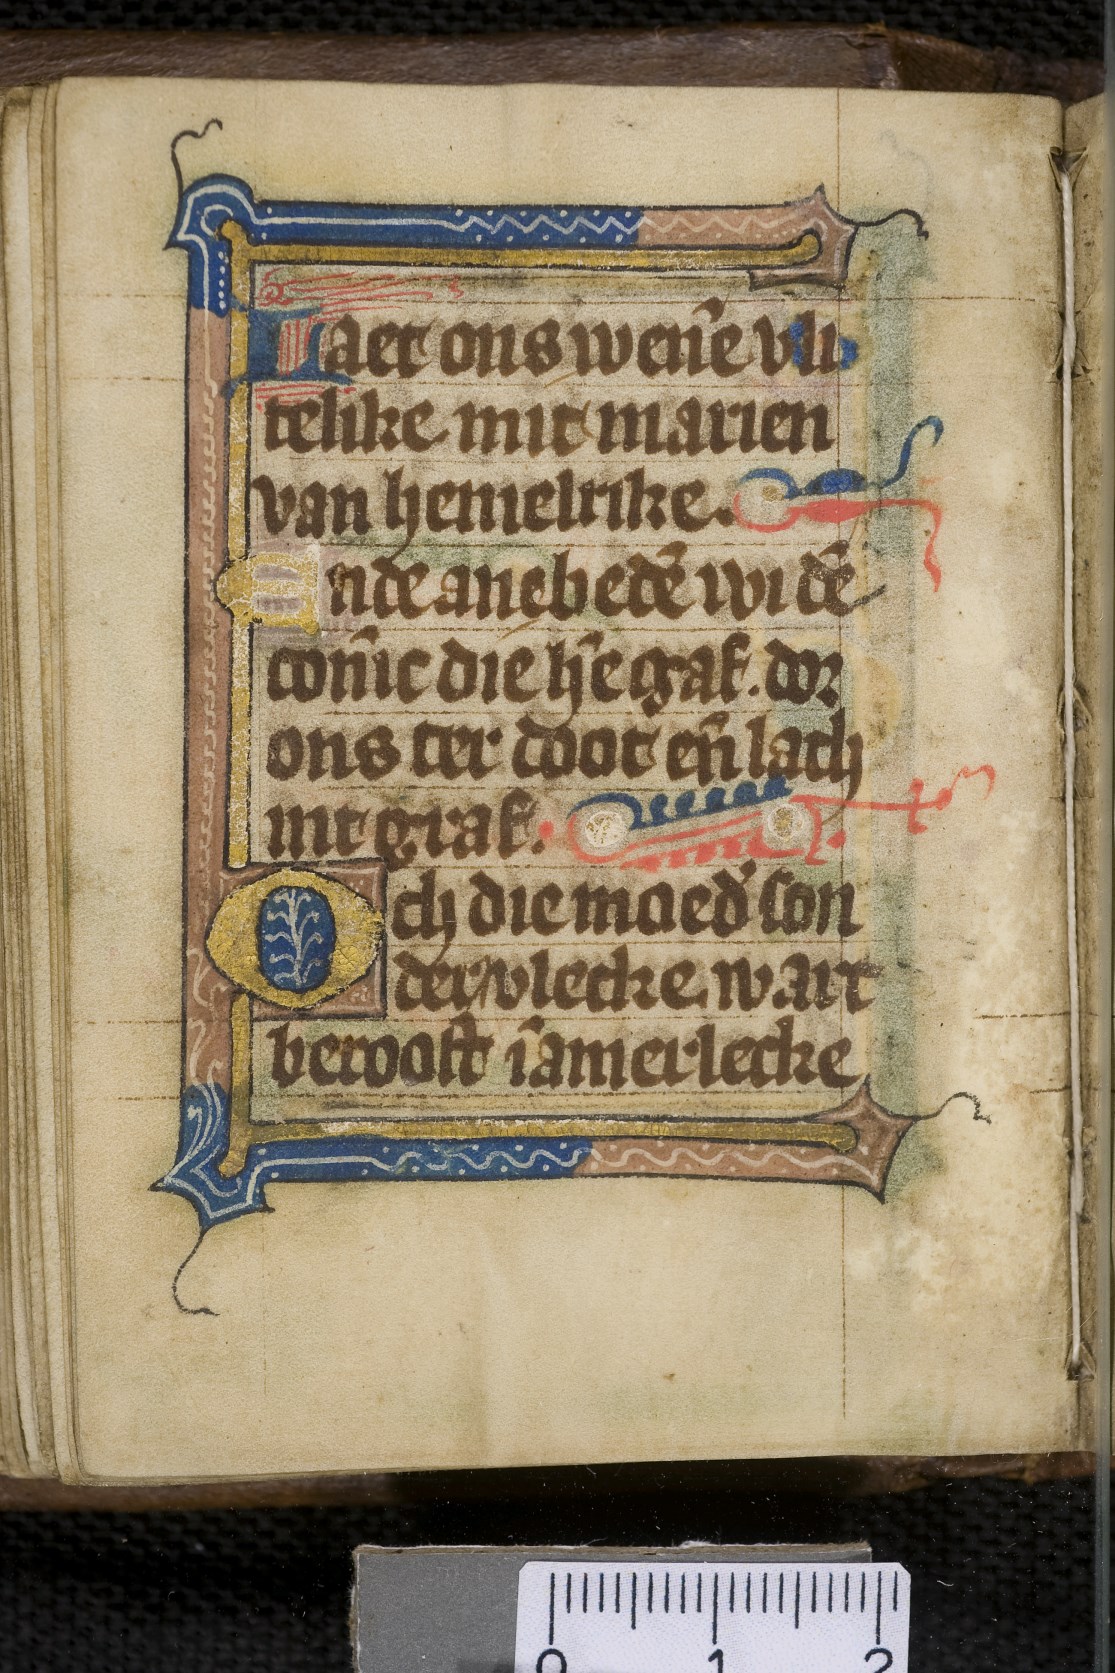 Laet ons weñe vli
telike mit marien
van hemelrike.
Ende anebedẽ wi dẽ
coñic die h̃e gaf. dor
ons ter doot eñ lach
int graf.
Och die moed' son
der vlecke. wart
berooft iamerlecke
0 1 2